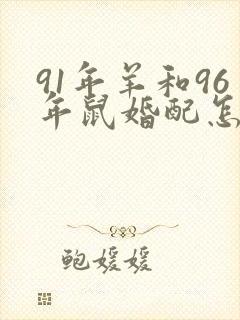 91年羊和96
年鼠婚配怎
鲍媛媛